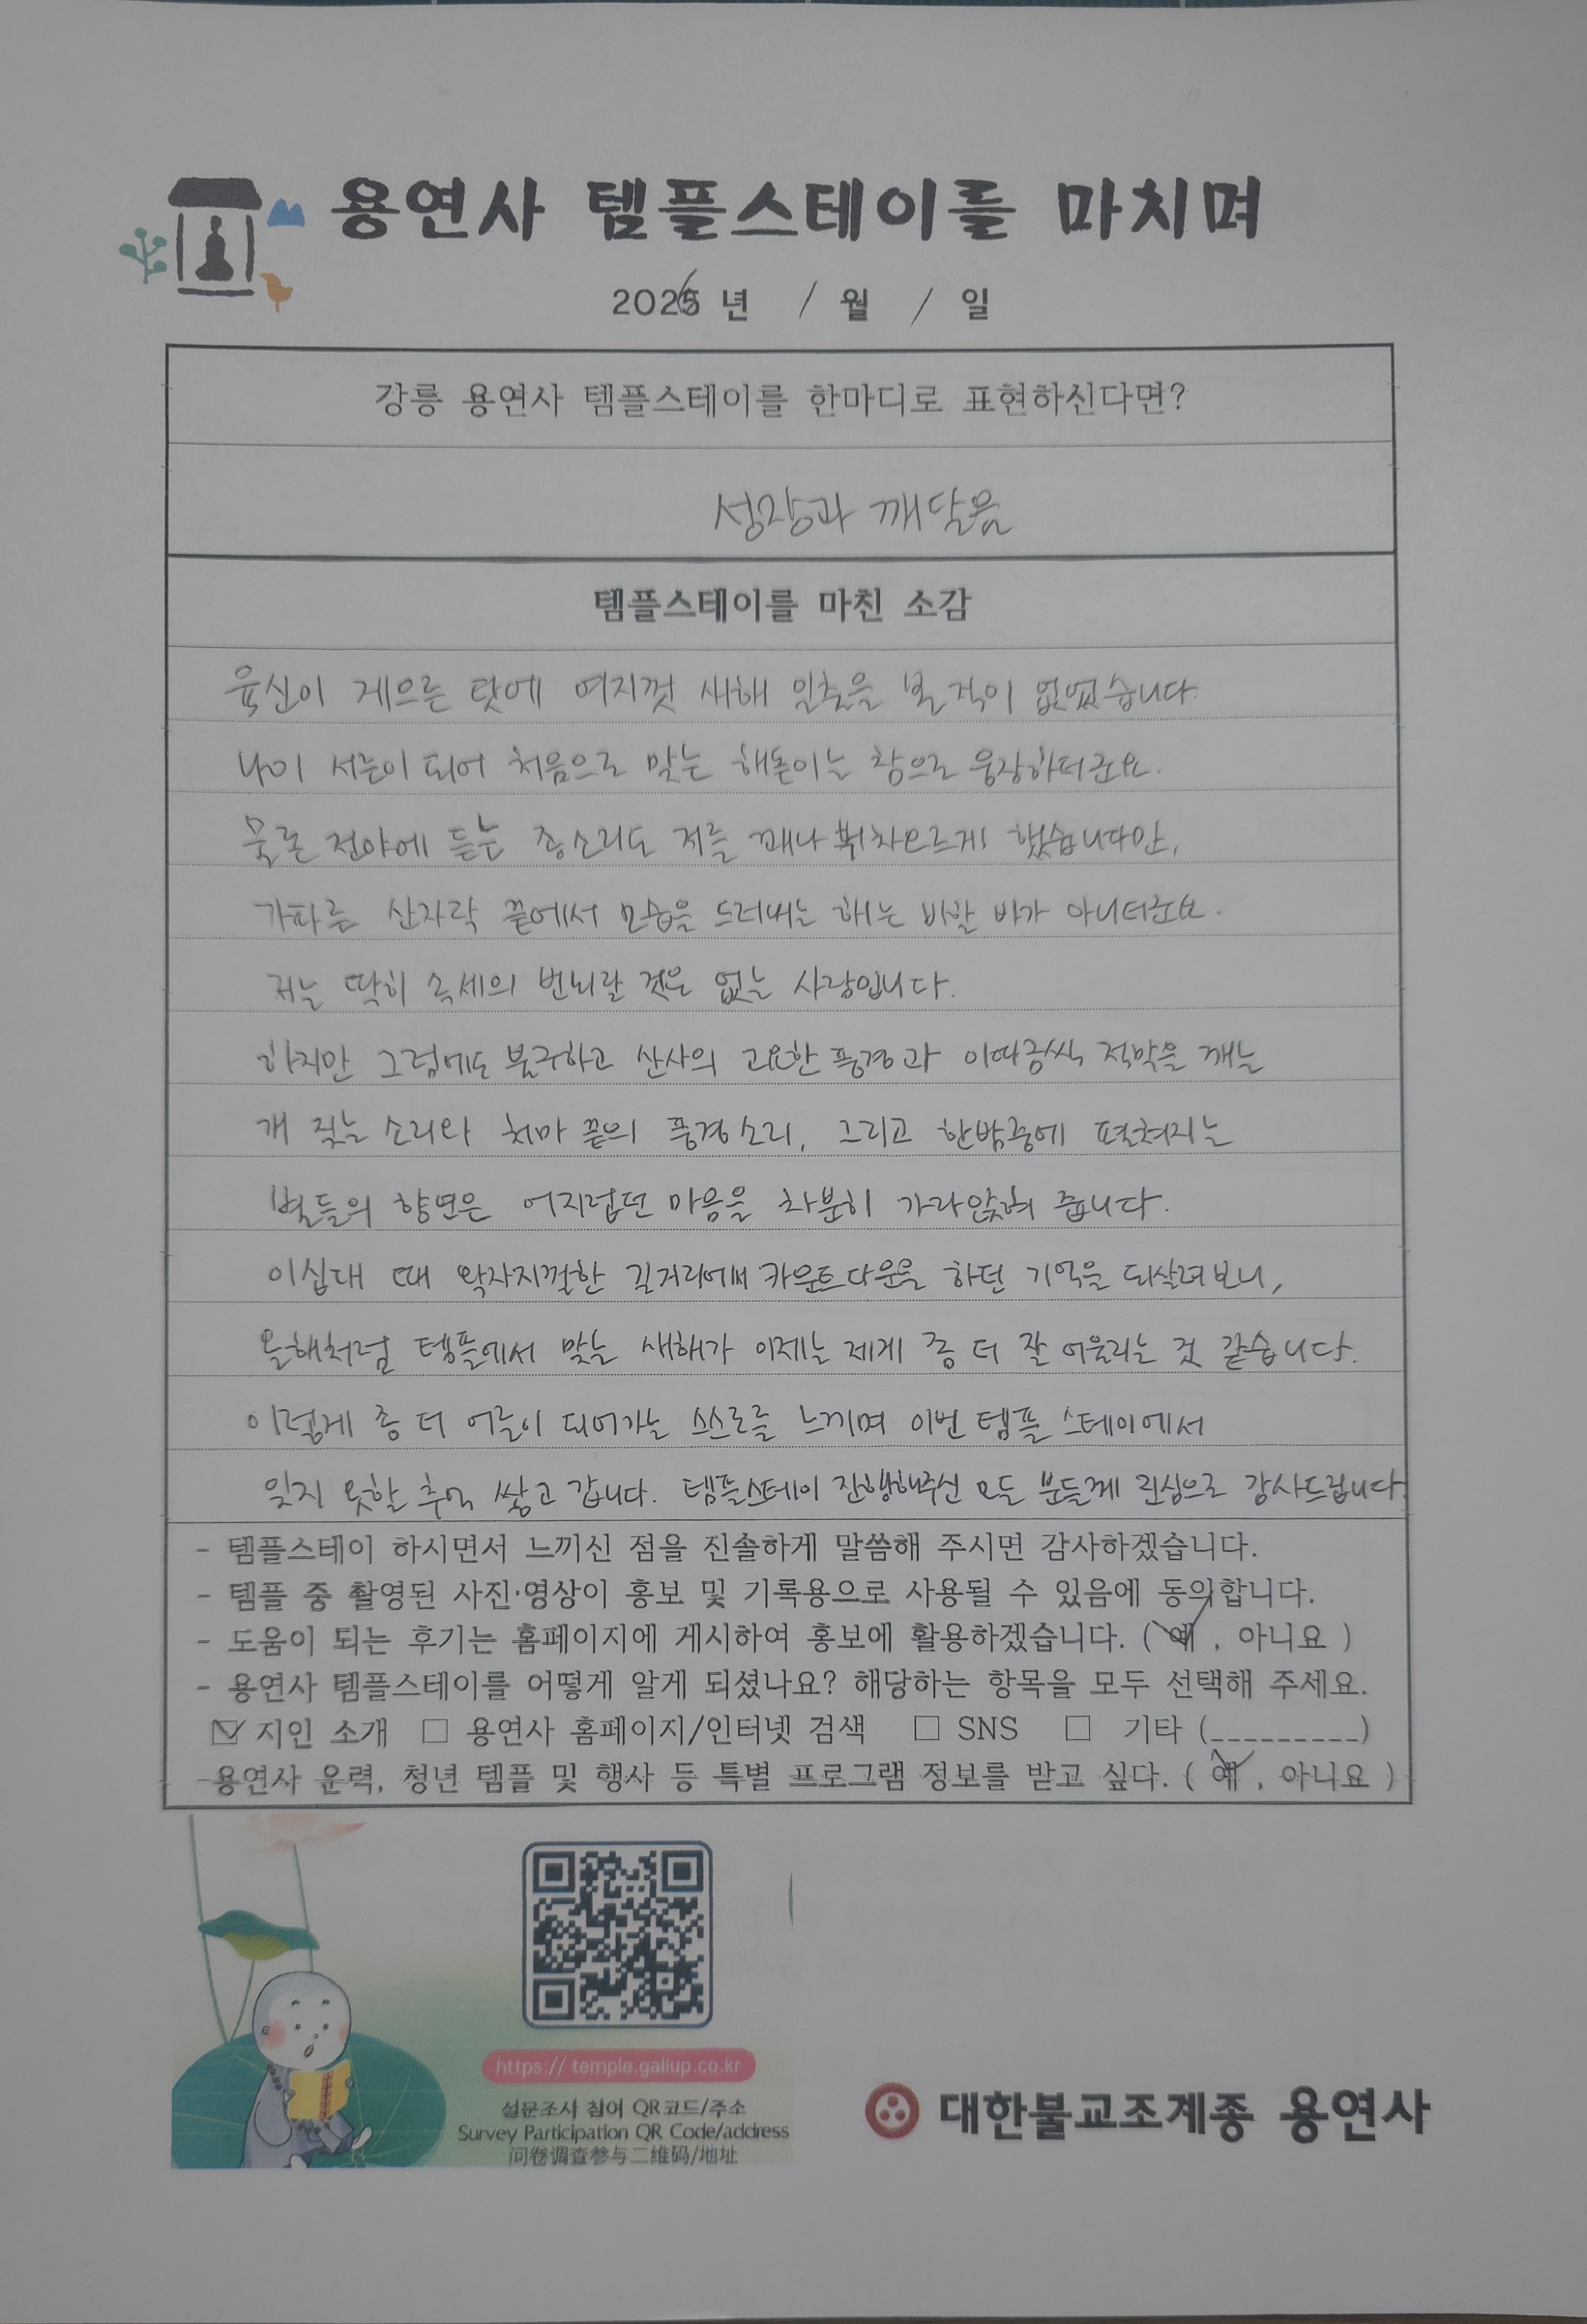 용연사 템플스테이를 마치며
2026 년 / 월 / 일
강릉 용연사 템플스테이를 한마디로 표현하신다면?
성장과 깨달음
템플스테이를 마친 소감
육신이 게으른 탓에 여지껏 새해 일출을 본 적이 없었습니다.
나이 서른이 되어 처음으로 맞는 해돋이는 참으로 웅장하더군요.
물론 전야에 듣는 종소리도 저를 꽤나 벅차오르게 했습니다만,
가파른 산자락 끝에서 모습을 드러내는 해는 비할 바가 아니더군요.
저는 딱히 속세의 번뇌랄 것은 없는 사람입니다.
하지만 그럼에도 불구하고 산사의 고요한 풍경과 이따금씩 적막을 깨는
개 짖는 소리와 처마 끝의 풍경소리, 그리고 한밤중에 펼쳐지는
별들의 향연은 어지럽던 마음을 차분히 가라앉혀 줍니다.
이십대 때 왁자지껄한 길거리에서 카운트다운을 하던 기억을 되살려보니,
올해처럼 템플에서 맞는 새해가 이제는 제게 좀 더 잘 어울리는 것 같습니다.
이렇게 좀 더 어른이 되어가는 스스로를 느끼며 이번 템플 스테이에서
잊지 못할 추억 쌓고 갑니다. 템플스테이 진행해주신 모든 분들께 진심으로 감사드립니다.
- 템플스테이 하시면서 느끼신 점을 진솔하게 말씀해 주시면 감사하겠습니다.
- 템플 중 촬영된 사진·영상이 홍보 및 기록용으로 사용될 수 있음에 동의합니다.
- 도움이 되는 후기는 홈페이지에 게시하여 홍보에 활용하겠습니다. ( 예 , 아니요 )
- 용연사 템플스테이를 어떻게 알게 되셨나요? 해당하는 항목을 모두 선택해 주세요.
☑ 지인 소개 □ 용연사 홈페이지/인터넷 검색 □ SNS □ 기타 (_________)
-용연사 운력, 청년 템플 및 행사 등 특별 프로그램 정보를 받고 싶다. ( 예 , 아니요 )
https:// temple.gallup.co.kr
설문조사 참여 QR코드/주소
Survey Participation QR Code/address
问卷调查参与二维码/地址
대한불교조계종 용연사